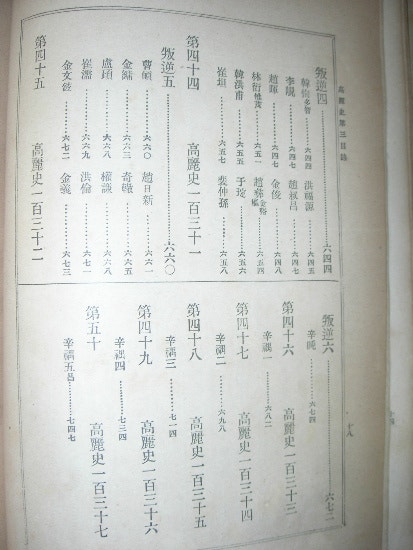 高麗史第三目錄
叛逆四……六四四
韓恂多智……六四四 洪福源……六四五
李峴……六四七 趙叔昌……六四七
趙暉……六四八 金俊……六四八
林衍惟茂……六五一 趙彝金裕……六五四
韓洪甫……六五五 于琔……六五六
崔坦……六五七 裴仲孫……六五八
第四十四 高麗史一百三十一
叛逆五……六六〇
曹頔……六六〇 趙日新……六六一
金鏞……六六三 奇轍……六六五
盧頙……六六八 權謙……六六八
崔濡……六六九 洪倫……六七一
金文鉉……六七二 金義……六七三
第四十五 高麗史一百三十二
叛逆六……
辛旽……六七四
第四十六 高麗史一百三十三
辛禑一……六八二
第四十七 高麗史一百三十四
辛禑二……六九八
第四十八 高麗史一百三十五
辛禑三……七一四
第四十九 高麗史一百三十六
辛禑四……七三四
第五十 高麗史一百三十七
辛禑五昌……七四七